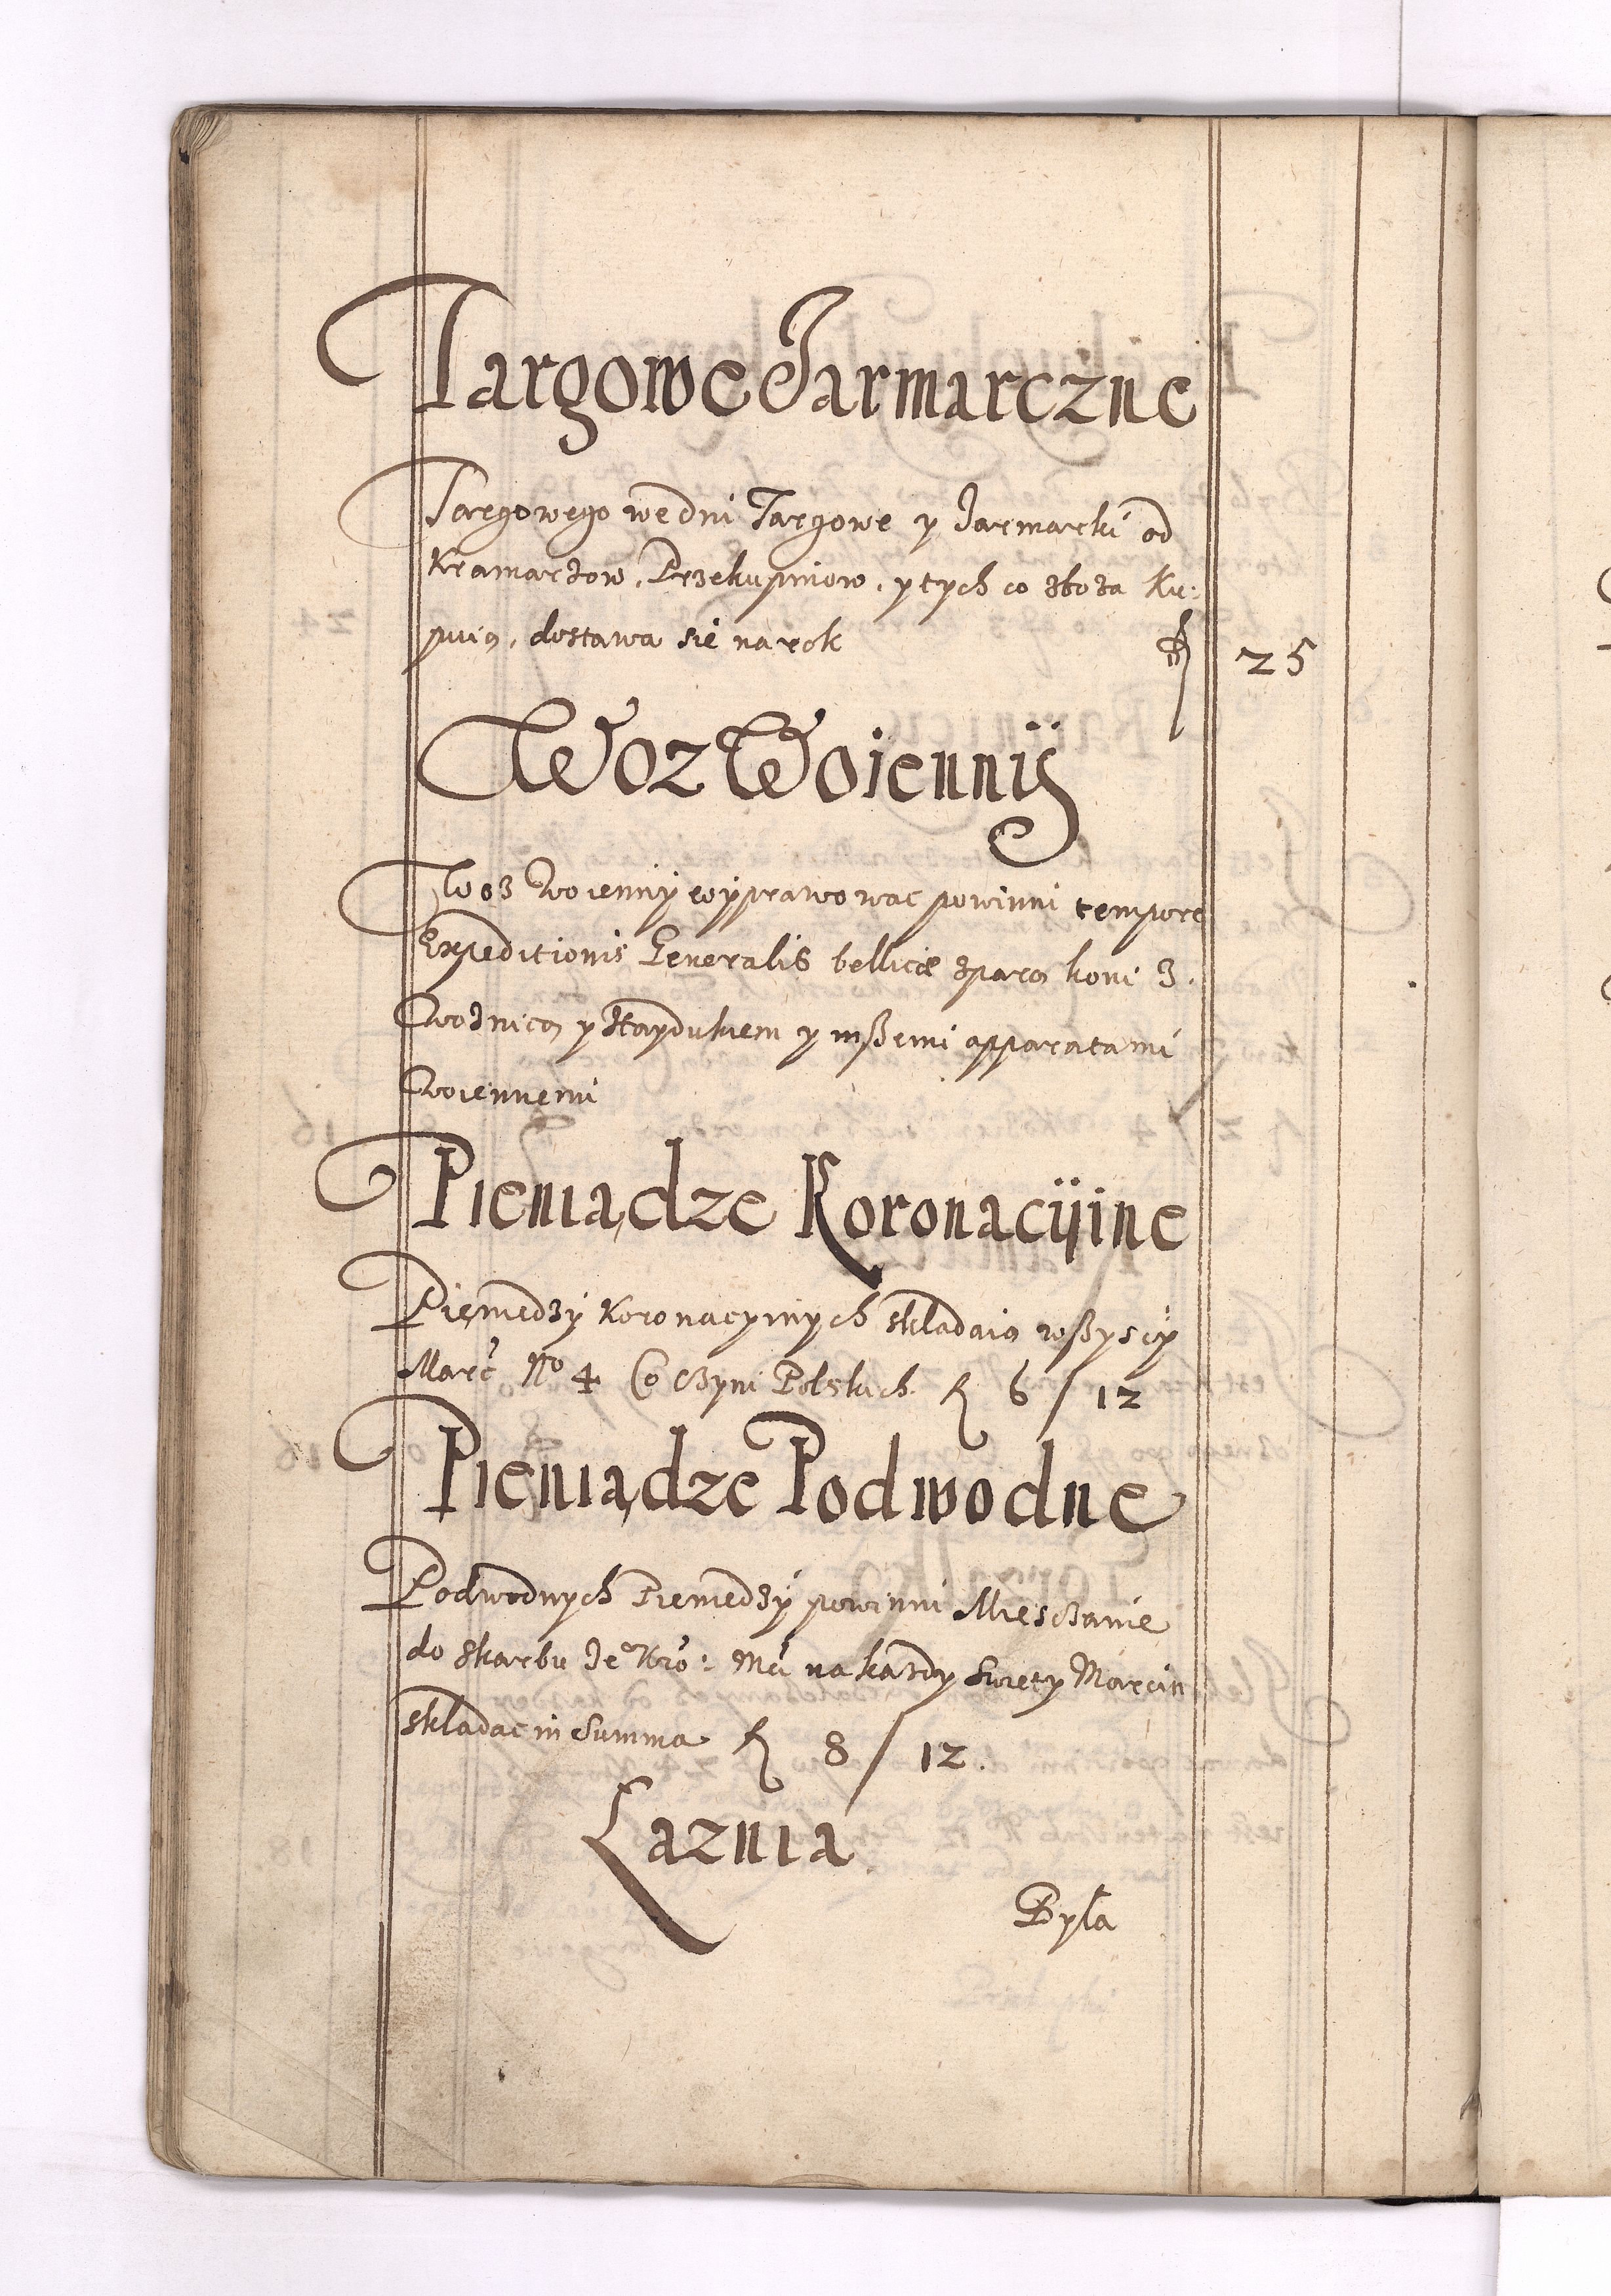 Targowe Jarmarczne
Targowego we dni Targowe y Jarmarki od
Kramarzow, Przekupniow, y tych co zboża Ku:
puią, dostawa się na rok 25
Woz Woiennÿ
Woz Woiennÿ wÿprawowac powinni tempore
Expeditionis Generalis bellicæ zparą koni 3.
Woznicą y Haydukiem y inßemi apparatami
Woiennemi
Pieniądze Koronacÿine
Pieniedzÿ Koronacyinych składaią wßyscÿ
Marc No 4 Co czyni Polskich f 6 / 12
Pieniądze Podwodne
Podwodnych Pieniedzÿ powinni Miesczanie
do skarbu Je° Kro: Mci na kazdy Swięty Marcin
składac in Summa f 8 / 12.
Łaznia
Była